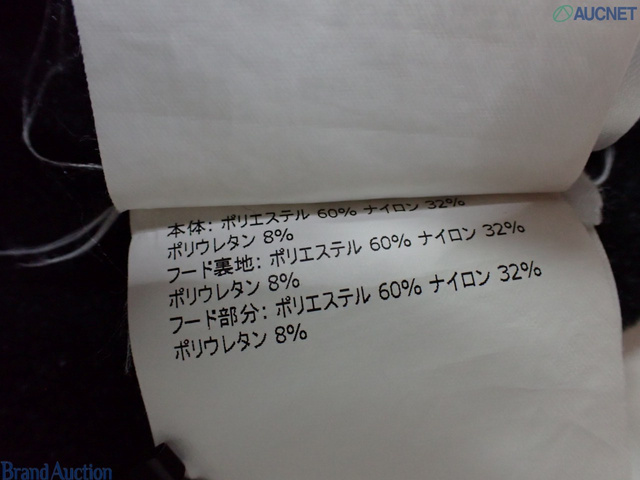 AUCNET
本体: ポリエステル 60% ナイロン 32%
ポリウレタン 8%
フード裏地: ポリエステル 60% ナイロン 32%
ポリウレタン 8%
フード部分: ポリエステル 60% ナイロン 32%
ポリウレタン 8%
Brand Auction